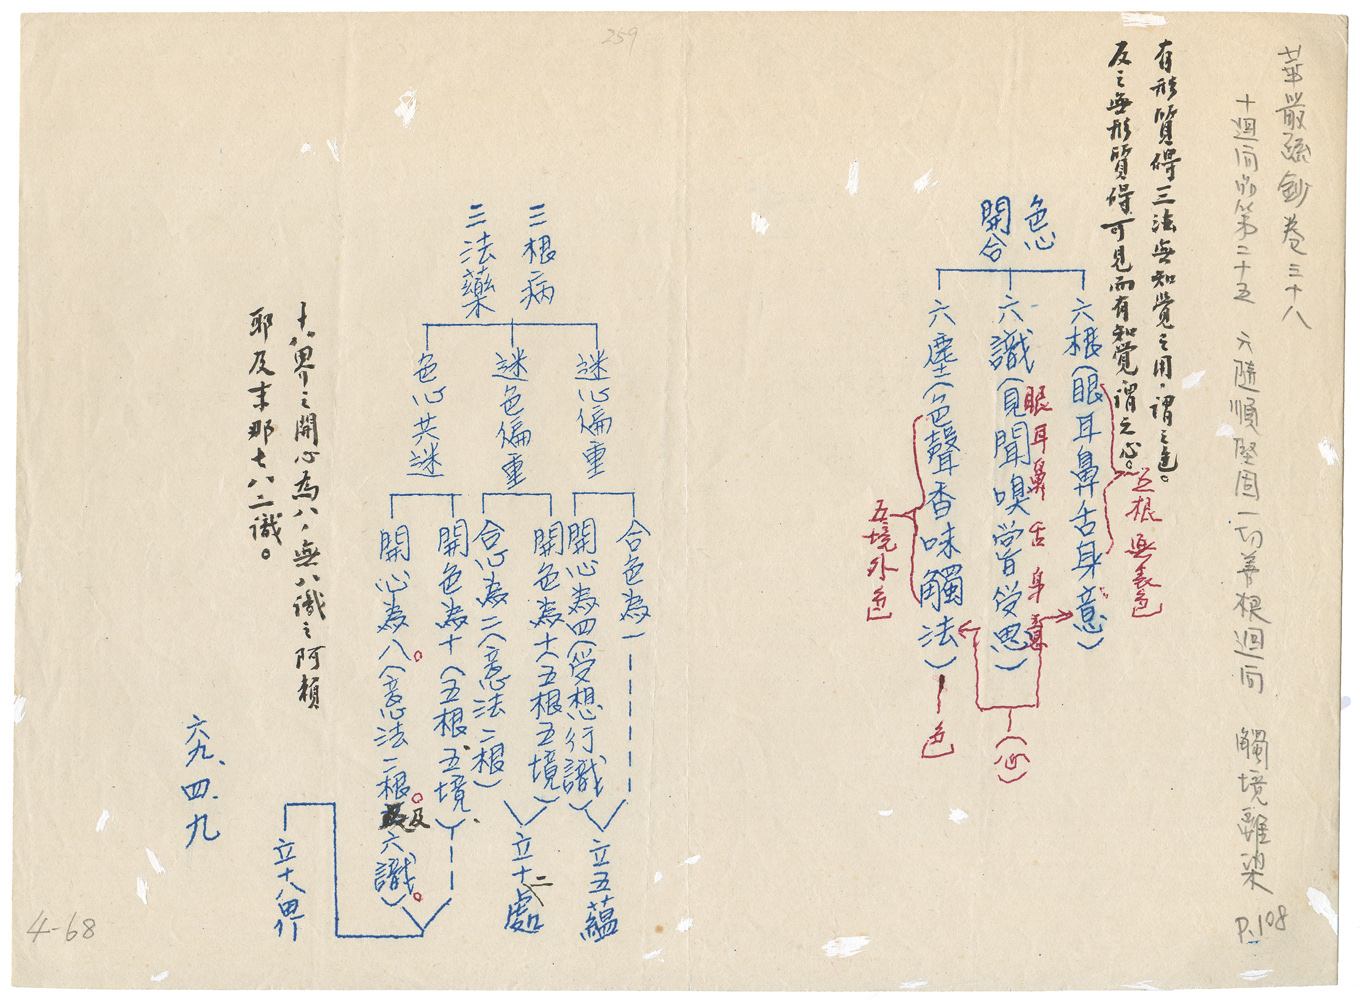 華嚴疏鈔卷三十八
十迴向品第二十五 六隨順堅固一切善根迴向 觸境離染
P.108
有形質得三法無知覺之用，謂之色。
反之無形質得可見而有知覺謂之心。
色心
開合
六根（眼耳鼻舌身意）
五根無表色
六識（見聞嗅嘗受思）
眼耳鼻舌身意
（心）
六塵（色聲香味觸法）
色
五境外色
259
三根病
三法藥
迷心偏重
合色為一
開心為四（受想行識）
立五蘊
迷色偏重
開色為十（五根五境）
合心為二（意法二根）
立十二處
色心共迷
開色為十（五根、五境）
開心為八。（意法二根。及六識。）
立十八界
十八界之開心為八，無八識之阿賴
耶及末那七八二識。
六九、四、九
4-68